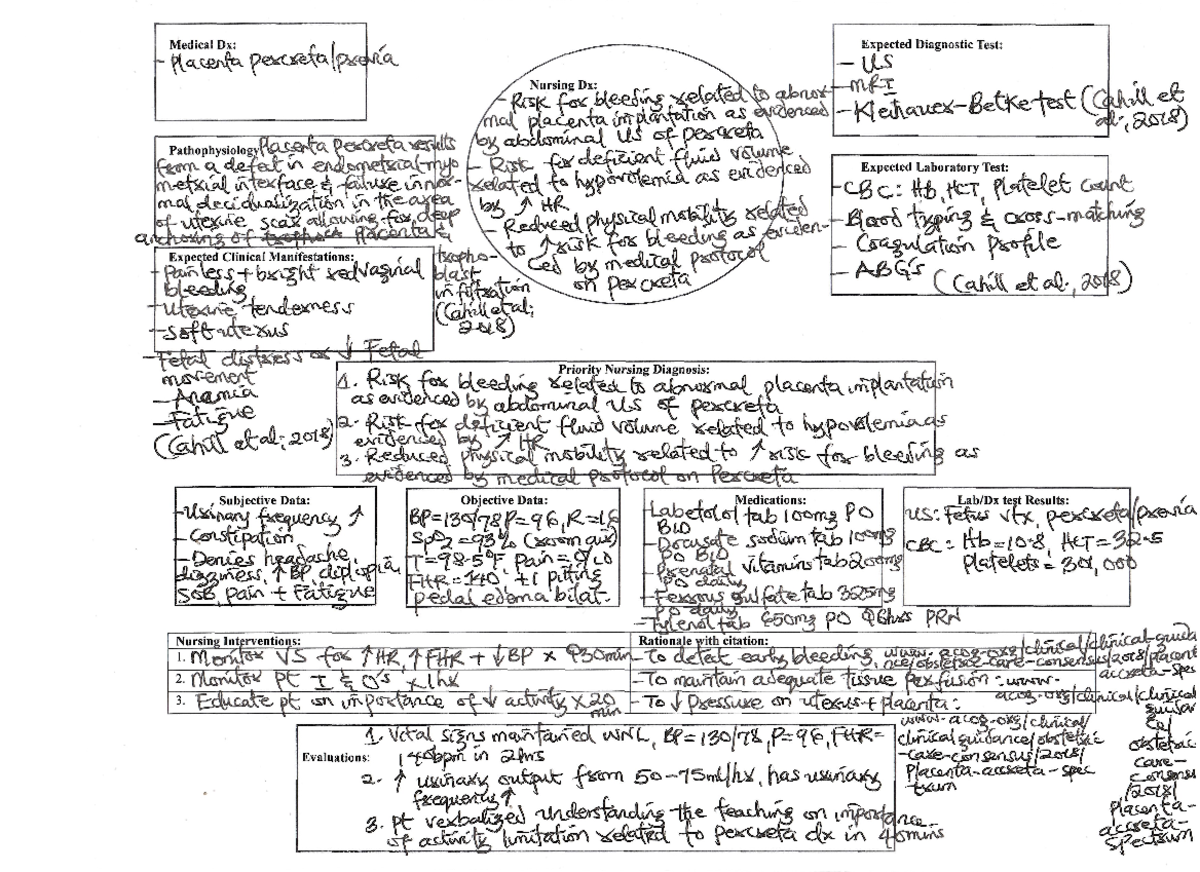 Medical Dx:
- Placenta percreta/previa
Pathophysiology Placenta percreta results
from a defect in endometrial-myo
metrial interface & failure in nor-
mal decidualization in the area
of uterine scar allowing for deep
anchoring of placental &
tropho-
blast
infiltration
(Cahill et al.,
2018)
Expected Clinical Manifestations:
- Painless + bright red vaginal
bleeding
- Uterine tenderness
- Soft uterus
- Fetal distress or ↓ Fetal
movement
- Anemia
- Fatigue
(Cahill et al., 2018)
Nursing Dx:
- Risk for bleeding related to abnor-
mal placenta implantation as evidenced
by abdominal US of percreta
- Risk for deficient fluid volume
related to hypovolemia as evidenced
by ↑ HR
- Reduced physical mobility related
to ↑ risk for bleeding as eviden-
ced by medical protocol
on percreta
Expected Diagnostic Test:
- US
- MRI
- Kleihauer-Betke test (Cahill et
al., 2018)
Expected Laboratory Test:
- CBC: Hb, HCT, Platelet count
- Blood typing & cross-matching
- Coagulation profile
- ABG's
(Cahill et al., 2018)
Priority Nursing Diagnosis:
1. Risk for bleeding related to abnormal placenta implantation
as evidenced by abdominal US of percreta
2. Risk for deficient fluid volume related to hypovolemia as
evidenced by ↑ HR
3. Reduced physical mobility related to ↑ risk for bleeding as
evidenced by medical protocol on Percreta
Subjective Data:
- Urinary frequency ↑
- Constipation
- Denies headache,
dizziness, ↑ BP, diplopia
SOB, pain + Fatigue
Objective Data:
BP=130/78 P=96, R=16
SpO2=93% (room air)
T=98.5°F, Pain=0/10
FHR=140, +1 pitting
pedal edema bilat.
Medications:
- Labetolol tab 100mg PO
BID
- Docusate sodium tab 100mg
PO BID
- Prenatal vitamins tab 200mg
PO daily
- Ferrous sulfate tab 325mg
PO daily
- Tylenol tab 650mg PO Q6hrs PRN
Lab/Dx test Results:
US: Fetus vtx, percreta/previa
CBC: Hb=10.8, HCT=32.5
Platelets=301,000
Nursing Interventions:
1. Monitor VS for ↑HR, ↑FHR + ↓BP x q30min
2. Monitor pt I & O's x 1hr
3. Educate pt on importance of ↓ activity x 20
min
Rationale with citation:
- To detect early bleeding, www.acog.org/clinical/clinical-guida
nce/obstetric-care-consensus/2018/placenta
accreta-spec
- To maintain adequate tissue perfusion: www.
acog.org/clinical/clinical
guidan
ce/
obstetric
care-
consensu
/2018/
placenta-
accreta-
spectrum
- To ↓ Pressure on uterus + placenta:
www.acog.org/clinical/
clinical guidance/obstetric
-care-consensus/2018/
Placenta-accreta-spec
trum
Evaluations:
1. Vital signs maintained WNL, BP=130/78, P=96, FHR=
140bpm in 2hrs
2. ↑ urinary output from 50-75ml/hr, has urinary
frequency ↑
3. pt verbalized understanding the teaching on importance
of activity limitation related to percreta dx in 40mins